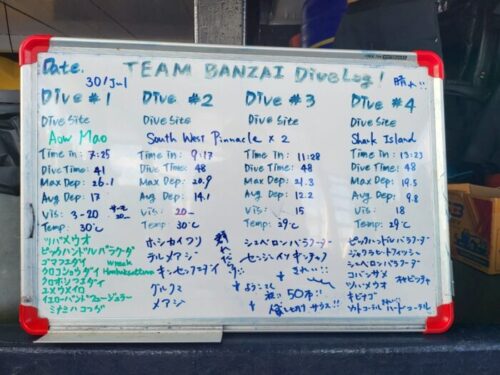 Date.
30/Jul
TEAM BANZAI DiveLog!
晴れ!!
Dive #1
Dive Site
Aow Mao
Time in: 7:25
Dive Time: 41
Max Dep: 26.1
Avg Dep: 17
Vis: 3-20
Temp: 30℃
ツバメウオ
ピックハンドルバラクーダ
ゴマフエダイ
クロコショウダイ
クロホシフエダイ
ユメウメイロ
イエローバンドフュージュラー
ミナミハコフグ
Dive #2
Dive Site
South West Pinnacle × 2
Time in: 9:17
Dive Time: 48
Max Dep: 20.9
Avg Dep: 14.1
Vis: 20
Temp: 30℃
ホシカイワリ
テルメアジ
キンセンフエダイ
グルクマ
メアジ
Dive #3
Dive Site
Time in: 11:28
Dive Time: 48
Max Dep: 21.3
Avg Dep: 12.2
Vis: 15
Temp: 29℃
シェベロンバラクーダ
センジュイソギンチャク
きれい!!
祝 50本!!
Dive #4
Dive Site
Shark Island
Time in: 13:23
Dive Time: 48
Max Dep: 19.5
Avg Dep: 9.8
Vis: 18
Temp: 29℃
ピックハンドルバラクーダ
ジョウラセークフィッシュ
シェベロンバラクーダ
コバンザメ
ツバメウオ
キビナゴ
ソフトコーラル ハードコーラル